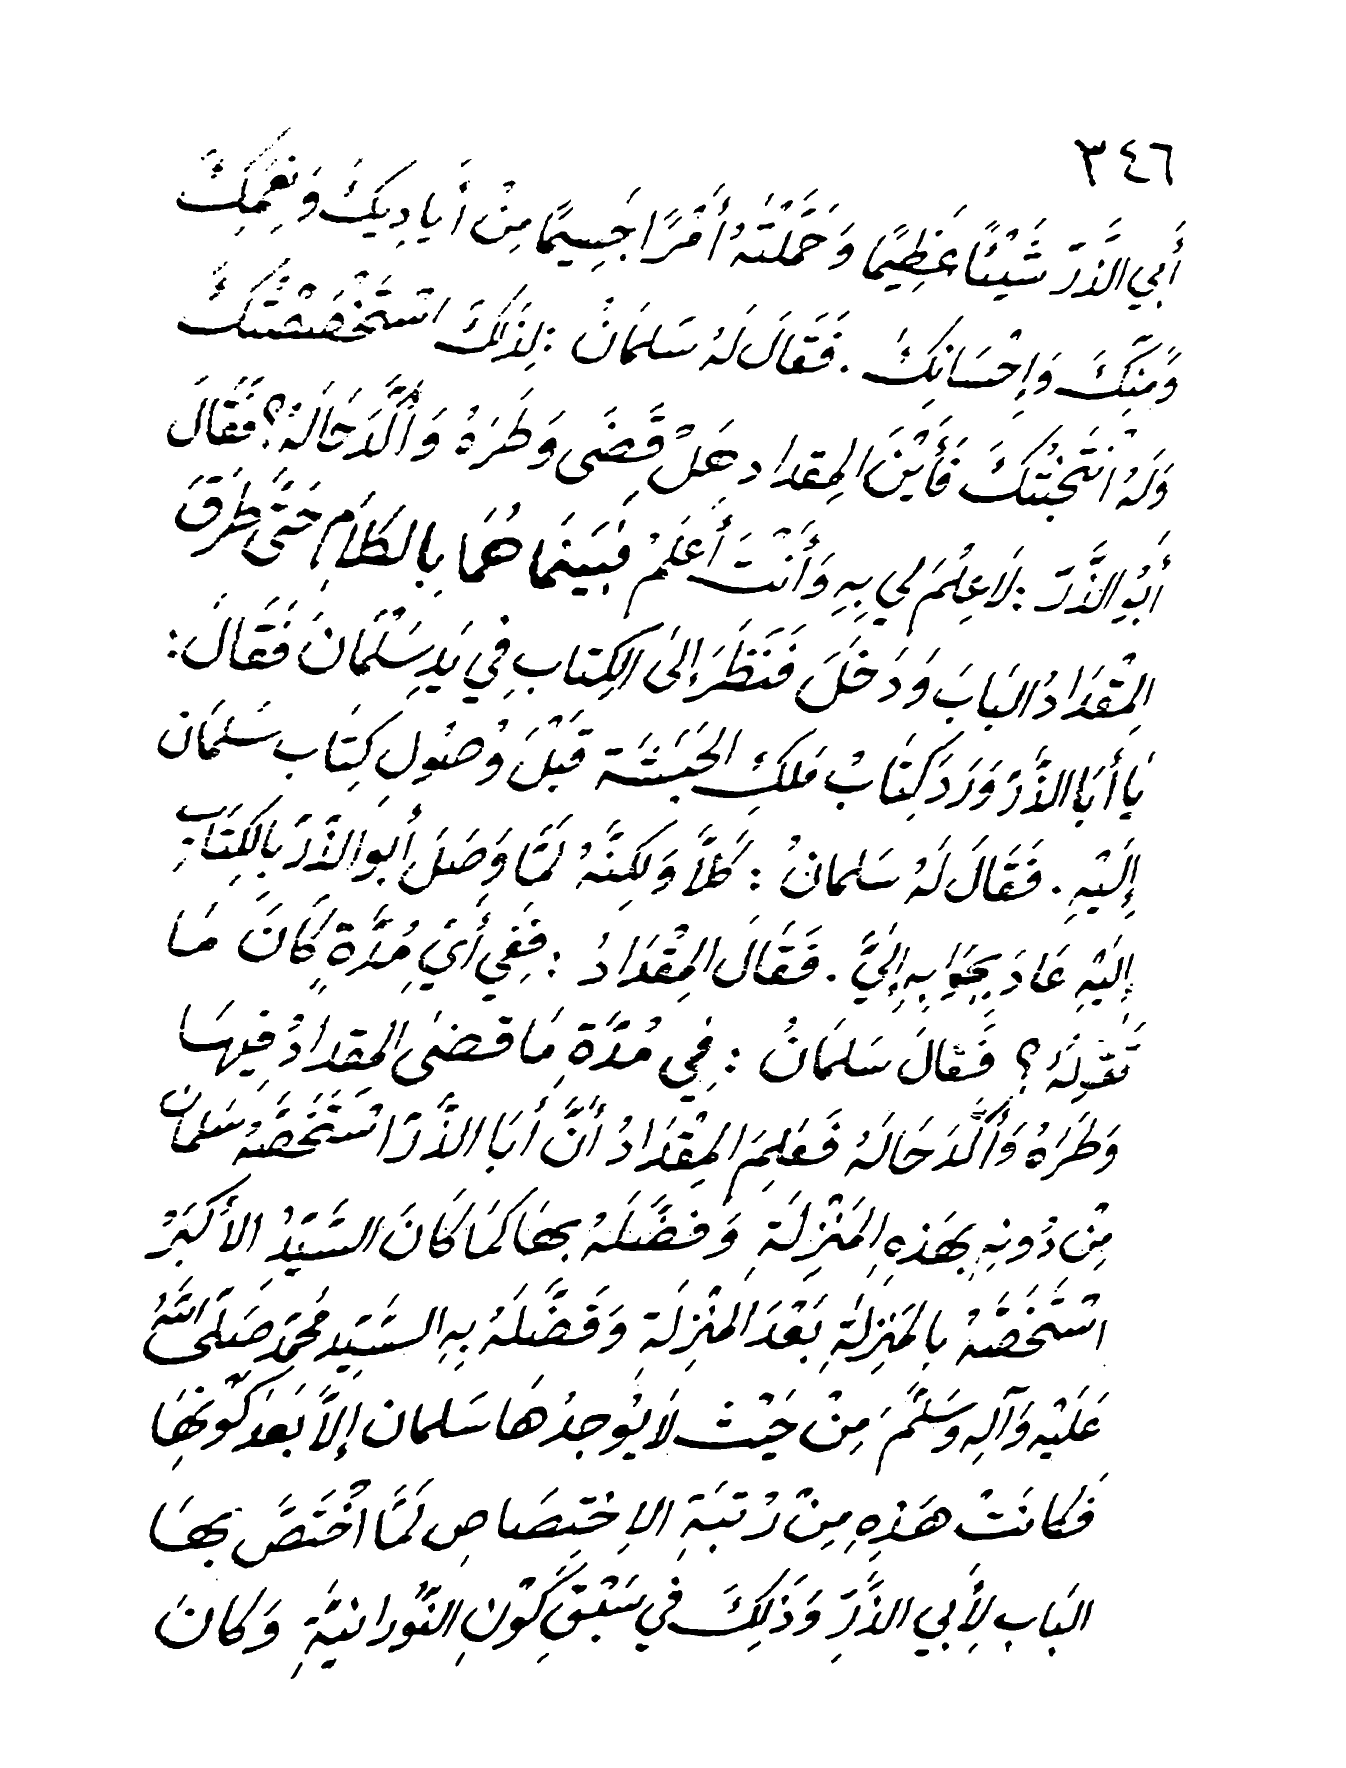 ٣٤٦
أَبِي الذَّرّ شَيْئًا عَظِيمًا وَحَمَّلْتَهُ أَمْرًا جَسِيمًا مِنْ أَيَادِيكَ وَنِعَمِكَ
وَمَنِّكَ وَإِحْسَانِكَ . فَقَالَ لَهُ سَلمَانُ : لِذَلِكَ اسْتَخْصَصْتُكَ
وَلَهُ انْتَخَبْتُكَ فَأَيْنَ المِقدادِ هَلْ قَضَى وَطَرَهُ وَأَكَّدَ حَالَهُ؟ فَقَالَ
أَبُو الذَّرّ : لَا عِلْمَ لِي بِهِ وَأَنْتَ أَعْلَمْ فَبَيْنَمَا هُمَا بِالكَلَامِ حَتَّى طَرَقَ
المِقْدَادُ البَابَ وَدَخَلَ فَنَظَرَ إِلىَ الكِتابِ فِي يَدِ سَلْمَانَ فَقَالَ :
يَا أَبَا الذَّرّ وَرَدَ كِتَابْ مَلِكِ الحَبَشَة قَبْلَ وُصُولِ كِتَاب سَلمَان
إِلَيْهِ . فَقَالَ لَهُ سَلمانُ : كَلَّا وَلكِنَّهُ لَمَّا وَصَلَ أَبوُ الذَّرّ بِالكِتَابِ
إِلَيْهِ عَادَ بِجَوَابِهِ إِلَيَّ . فَقَالَ المِقْدَادُ : فَفِي أَيِّ مُدَّةٍ كَانَ مَا
تَقوِلَهُ ؟ فَقالَ سَلمَانُ : فِي مُدَّةِ مَا قضىَ المقدادُ فِيهَا
وَطَرَهُ وَأَكَّدَ حَالَهُ فَعَلِمَ المِقْدَادُ أَنَّ أَبَا الذَّرّ اسْتَخَصَّهُ سَلمان
مِنْ دُونِهِ بِهَذِهِ المَنْزِلَةِ وَفضَّلَهُ بِهَا كَمَا كَانَ السَّيّدُ الأَكبَرُ
اسْتَخَصَّهُ بِالمَنزِلَةِ بَعْدَ المَنْزِلَةِ وَفَضَّلَهُ بِهِ السَّيّد محُمَّد صَلَّى اللَّهُ
عَلَيْهِ وَآلِهِ وَسَلَّمَ مِنْ حَيْث لَا يُوجِدُهَا سَلمان إِلَّا بَعْدَ كَوْنِهَا
فَكانَتْ هَذِهِ مِنْ رُتبَةِ الاِخْتِصَاصِ لَمَّا اخْتَصَّ بِهَا
البَابِ لِأَبِي الذَّرِّ وَذَلِكَ فِي سَبْقِ كَوْنِ النُّورانيَّةِ وَكانَ